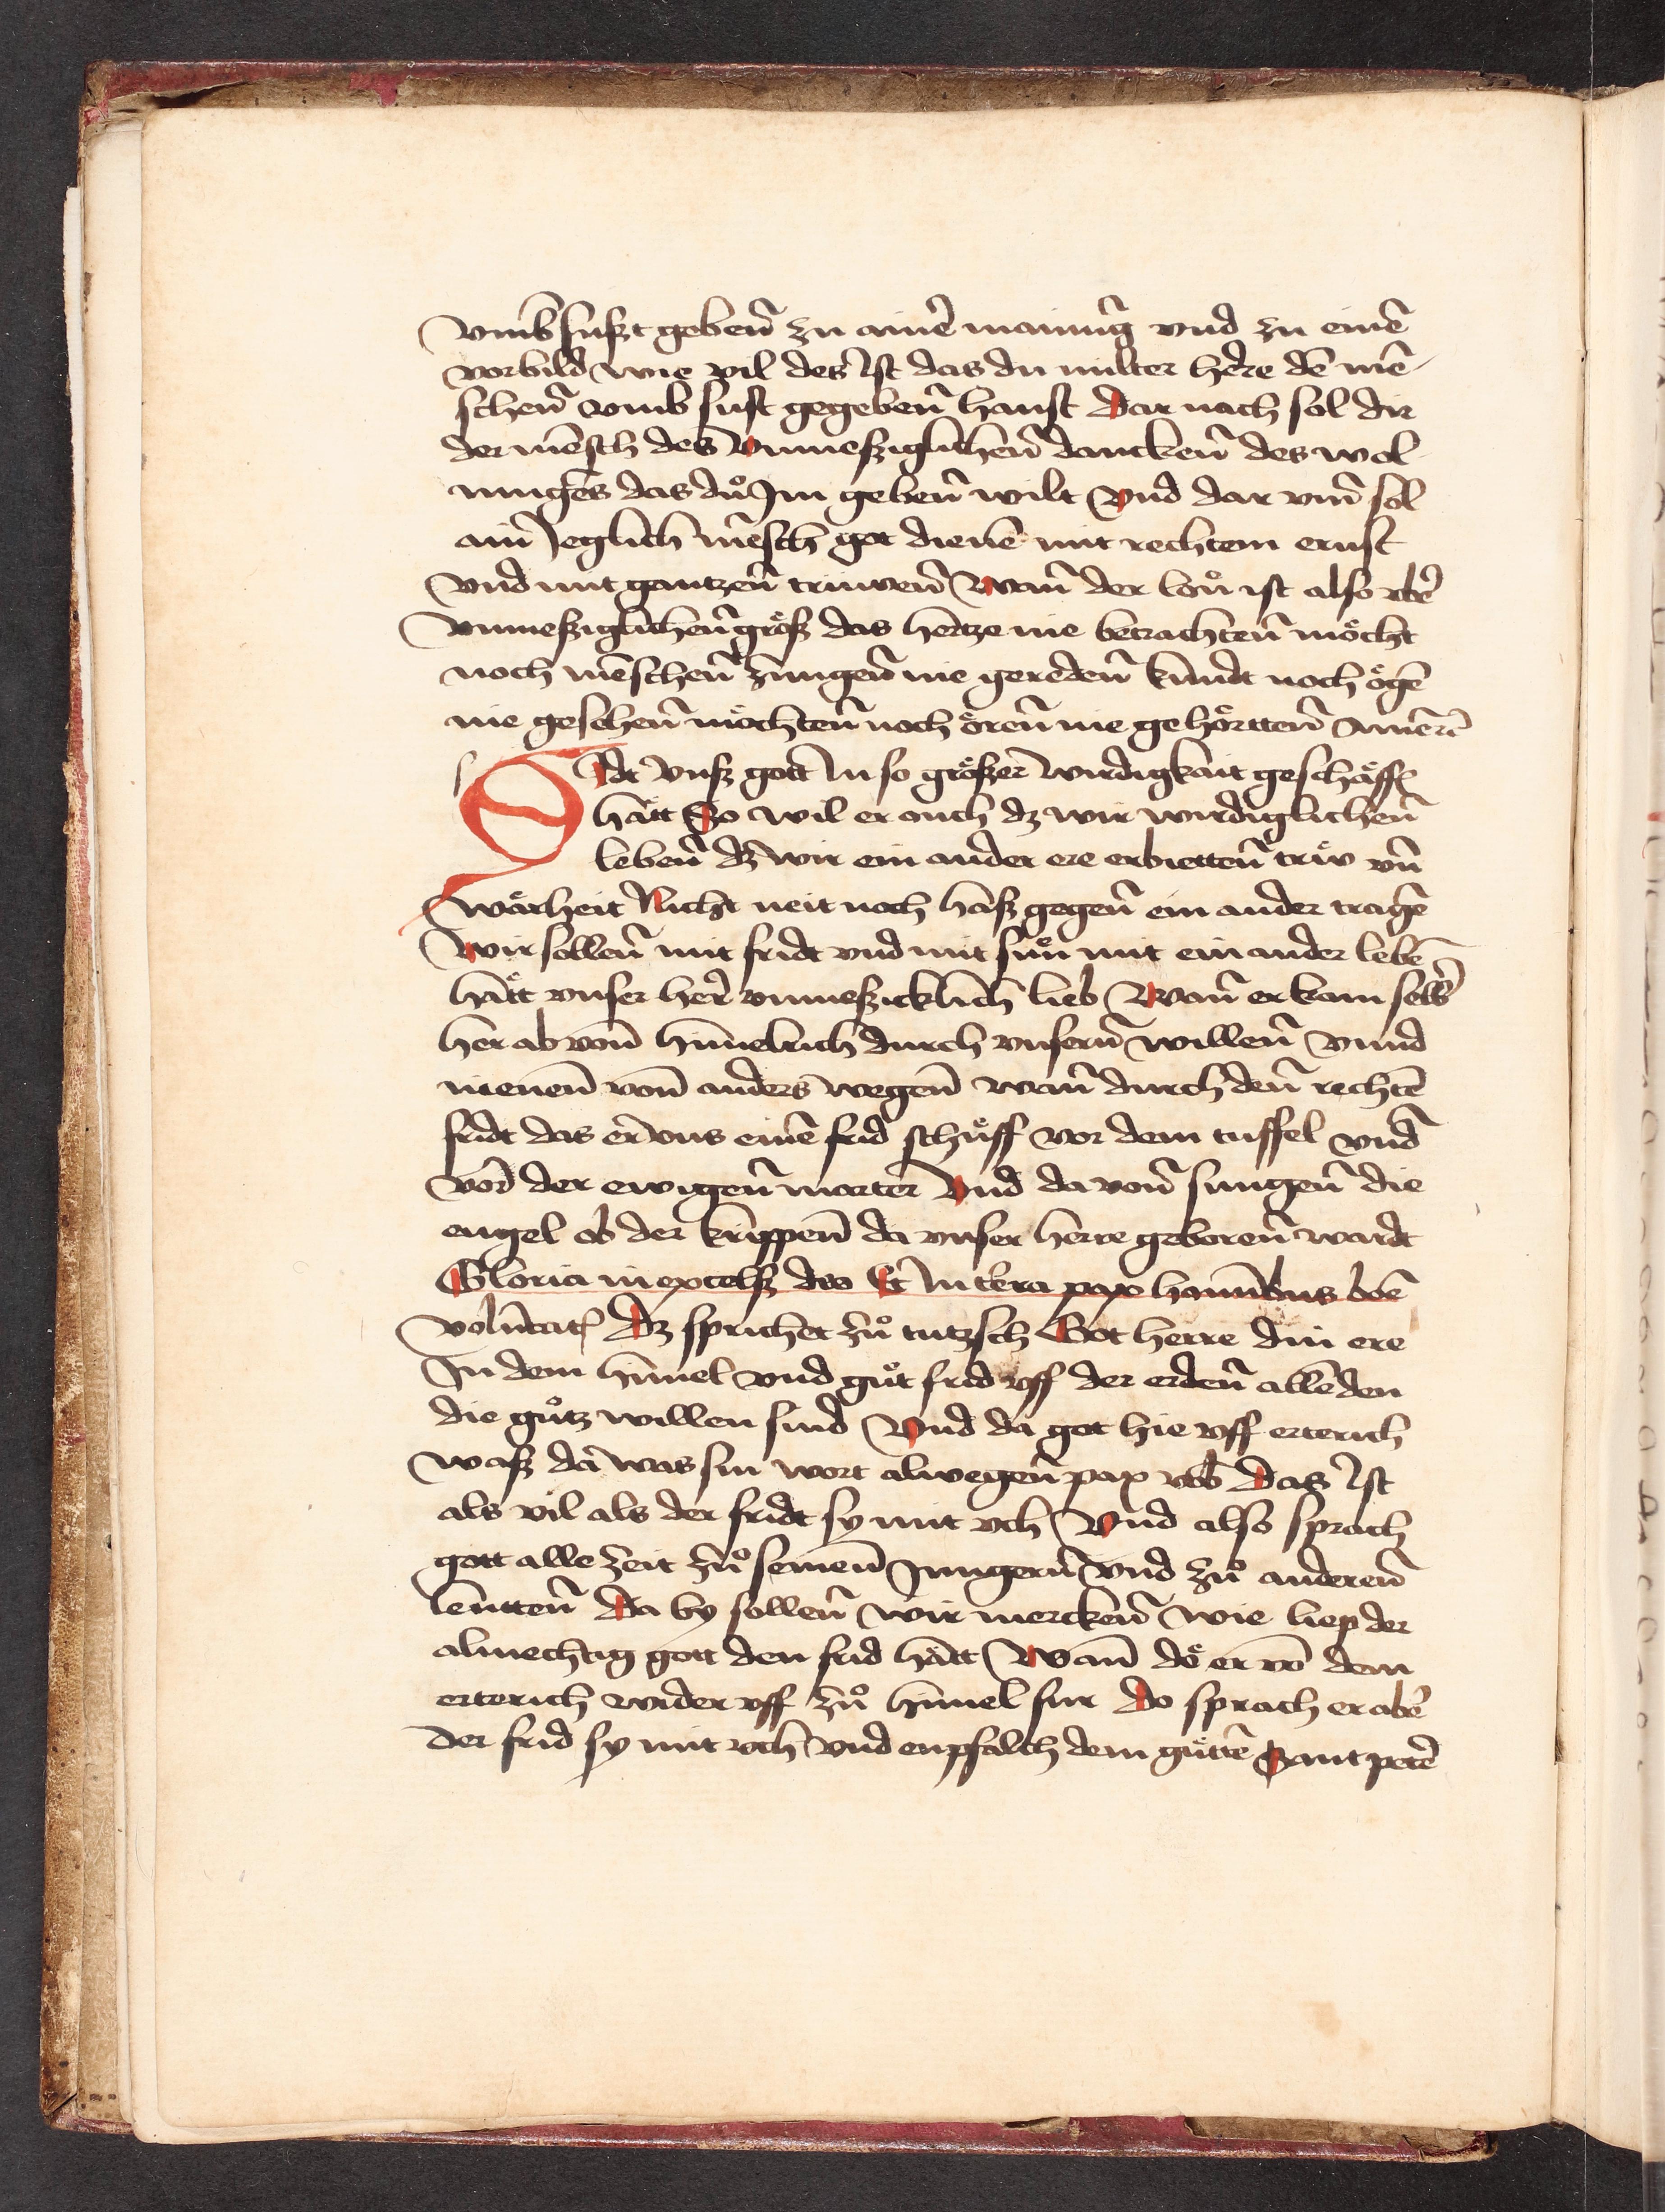 vmb sußt gebeñ zu ainē mainūg vnd zu einē
vorbild wie vil des ist das du milter here dē mē
scheñ vmb sust gegebeñ hanst Dar nach sol dir
der mēsch des vnmeßiglicheñ danckeñ des wol
nunges das dů Im gebeñ wilt Vnd dar vm̄ sol
ain Jeglich mēsch got dienē mit rechtem ernst
vnd mit gantzeñ trüweñ Wañ der loñ ist also vbē
vnmeßiglicheñ größ das hertze nie betrachteñ möcht
noch mēscheñ zungeñ nie geredeñ kundt noch ögē
nie geseheñ möchteñ noch öreñ nie gehörtteñ
SIdt vnß gott In so größer wirdigkait geschäff
hātt So wil er ouch dz wir wirdiglicheñ
lebeñ dz wir ein ander ere erbietteñ triw vñ
wärheit Nicht neit noch haß gegeñ ein ander tragē
Wir solleñ mit fridt vnd mit suñ mit ein ander lebē
hätt vnser her vnmeßicklich lieb Wañ er kam selb
her ab von himelrich durch vnserñ willeñ vnnd
nieneñ von anders wegeñ wañ durch deñ rechtē
fridt das er vns einē frid schüff vor dem tuffel vnd
vor der ewigeñ marter Vnd da voñ sungeñ die
engel ob der krippeñ da vnser herre geboreñ wardt
Gloria in excelß deo Et In terra pax hominibus bōē
volūtat Dz sprichet zů tutzsch Got herre din ere
In dem himel vnd gůt frid vff der erdeñ allē den
die gůtz willen sind Vnd da got hie vff erterich
waß da was sin wort alwegeñ pax vob Das Ist
als vil als der fridt sy mit vch Vnd also sprach
gott alle zeit zů seineñ Jungerñ vnd zů andereñ
leutteñ Da by solleñ wir merckeñ wie liep der
almechtig gott den frid hātt Wañ dö er vō dem
erterich wider vff zů himel fur Do sprach er abē
der frid sy mit vch vnd enpfalch dem gůttē Sant petē